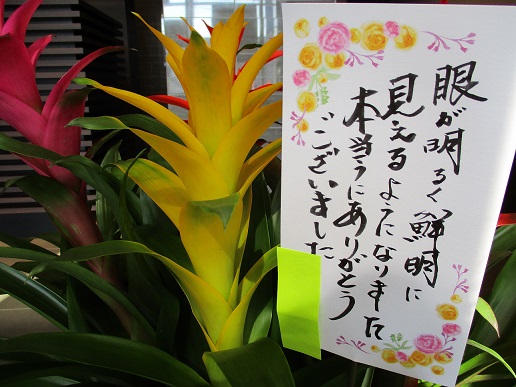 眼が明るく鮮明に
見えるようになりました
本当うにありがとう
ございました